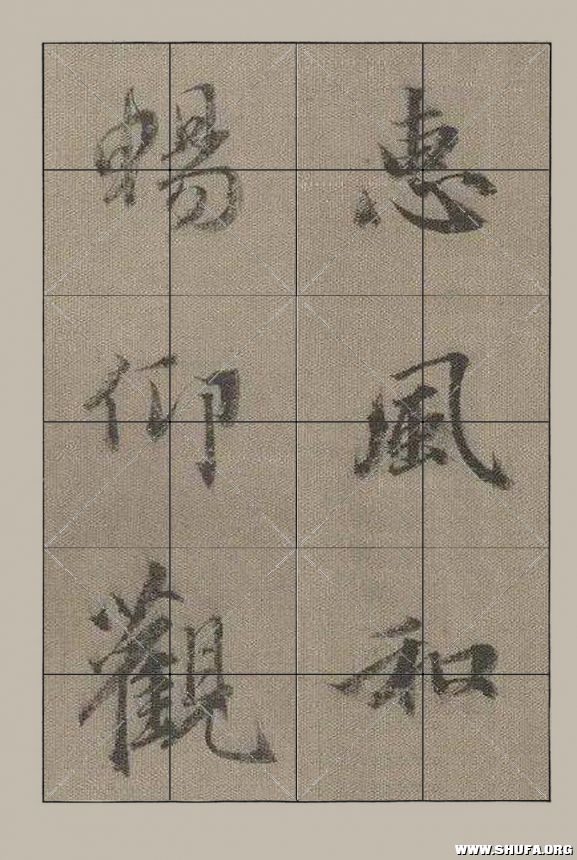 惠風和
暢仰觀
WWW.SHUFA.ORG